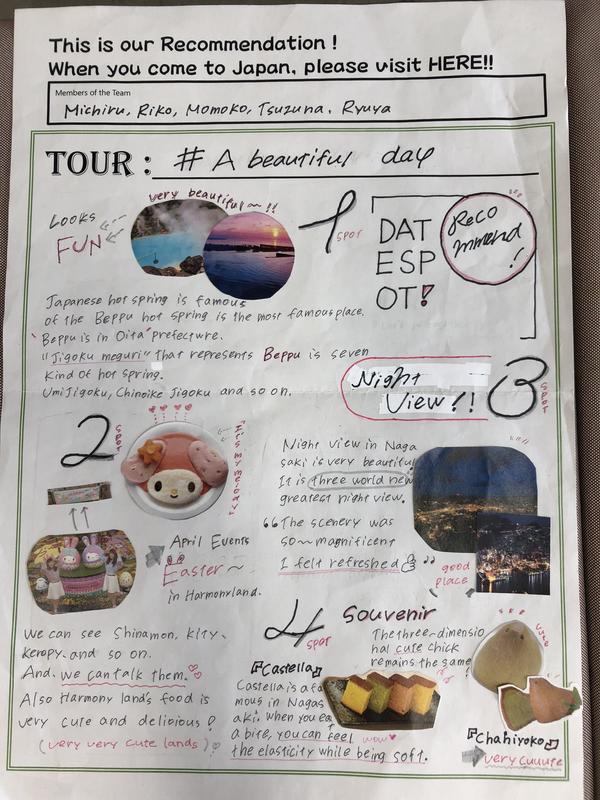 This is our Recommendation !
When you come to Japan, please visit HERE!!
Members of the Team
Michiru, Riko, Momoko, Tsuzuna, Ryuya
TOUR : # A beautiful day
very beautiful~!!
Looks
FUN
1 SPOT
DAT
ESP
OT!
Reco
mmend
!
Japanese hot spring is famous
of the Beppu hot spring is the most famous place.
Beppu is in Oita prefecture.
"Jigoku meguri" that represents Beppu is seven
Kind of hot spring.
Umi Jigoku, Chinoike Jigoku and so on.
Night
View!!
3 SPOT
2 SPOT
"It's my melody"
April Events
Easter~
in Harmonyland.
We can see Shinamon, kity,
keropy, and so on.
And, we can talk them.
Also Harmony land's food is
very cute and delicious!
(very very cute lands)
Night view in Naga
saki is very beautiful
It is three world new
greatest night view.
"The scenery was
so~magnificent
I felt refreshed"
good
place
4 SPOT
Souvenir
The three-dimensio
nal cute chick
remains the same
cute
『Castella』
Castella is a fa
mous in Nagas
aki. when you ea
a bite, you can feel
the elasticity while being soft.
wow
『Chahiyoko』
very cuuute